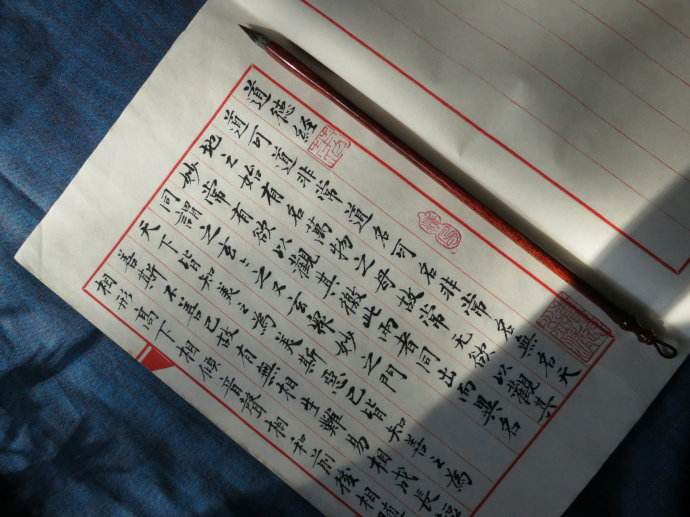 道德經
道可道非常道名可名非常名無名天
地之始有名萬物之母故常无欲以觀其
妙常有欲以觀其徼此兩者同出而異名
同謂之玄々之又玄眾妙之門
天下皆知美之為美斯惡已皆知善之為
善斯不善已故有無相生難易相成長短
相形高下相傾音聲相和前後相隨